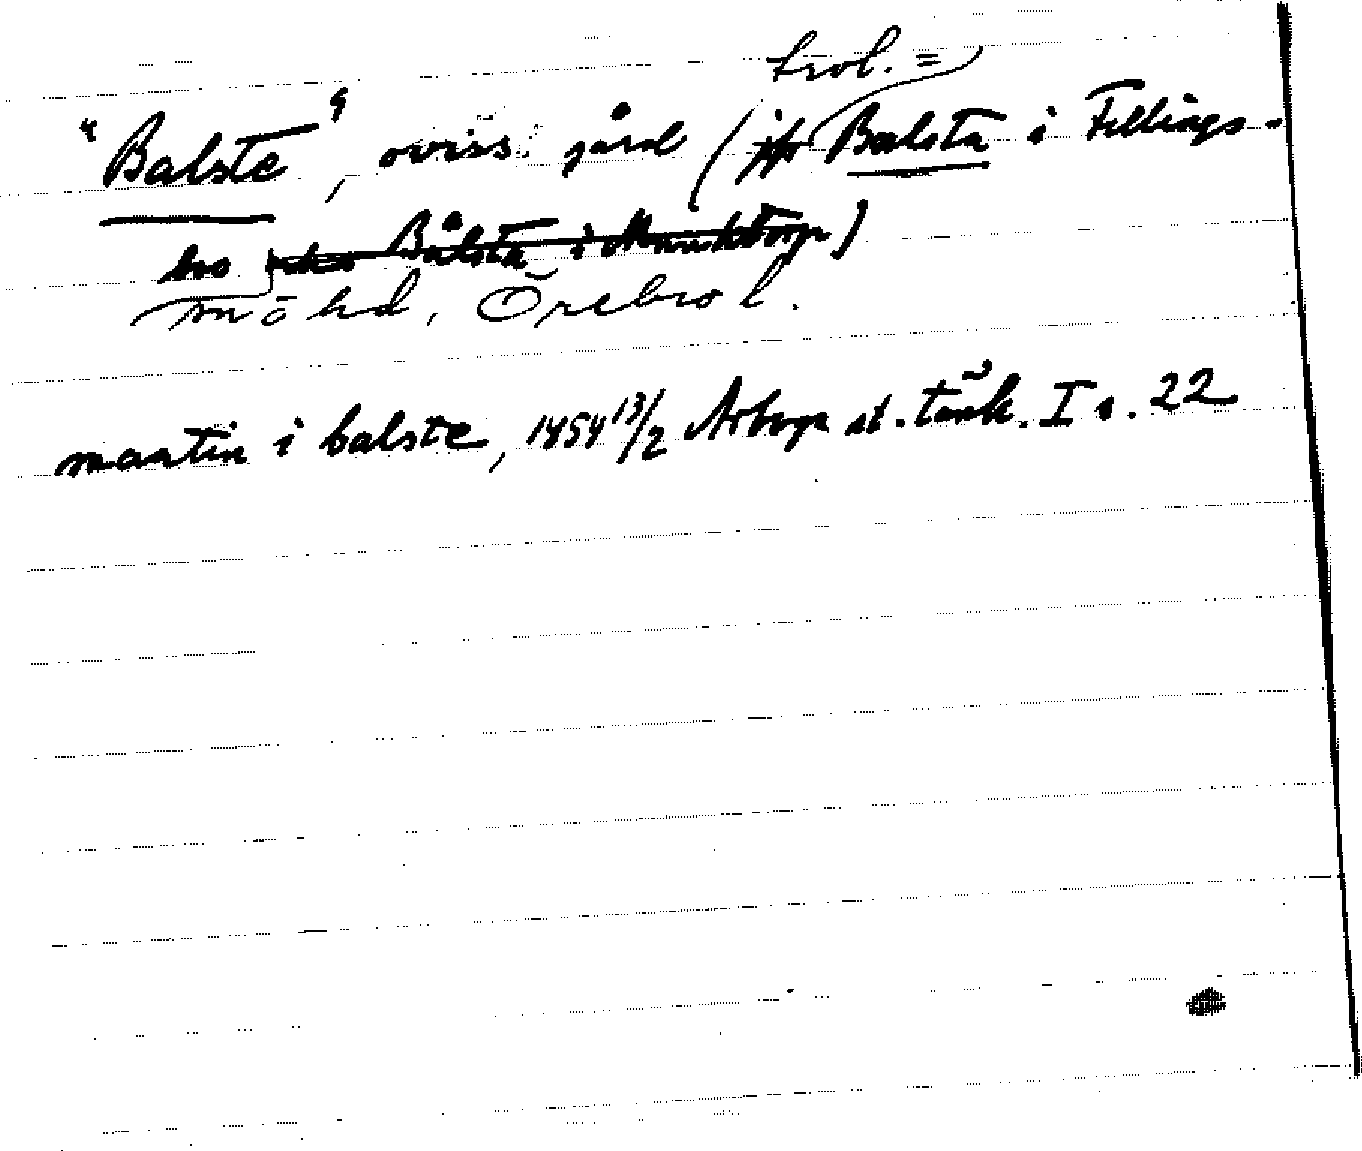 trol. =
"Balste", oviss gård (jfr Balsta i Fellings-
bro eller Bålsta i Munktorp)
sn o hd, Örebro l.
martin i balste, 1454 13/2 Arboga st. tänk. I s. 22